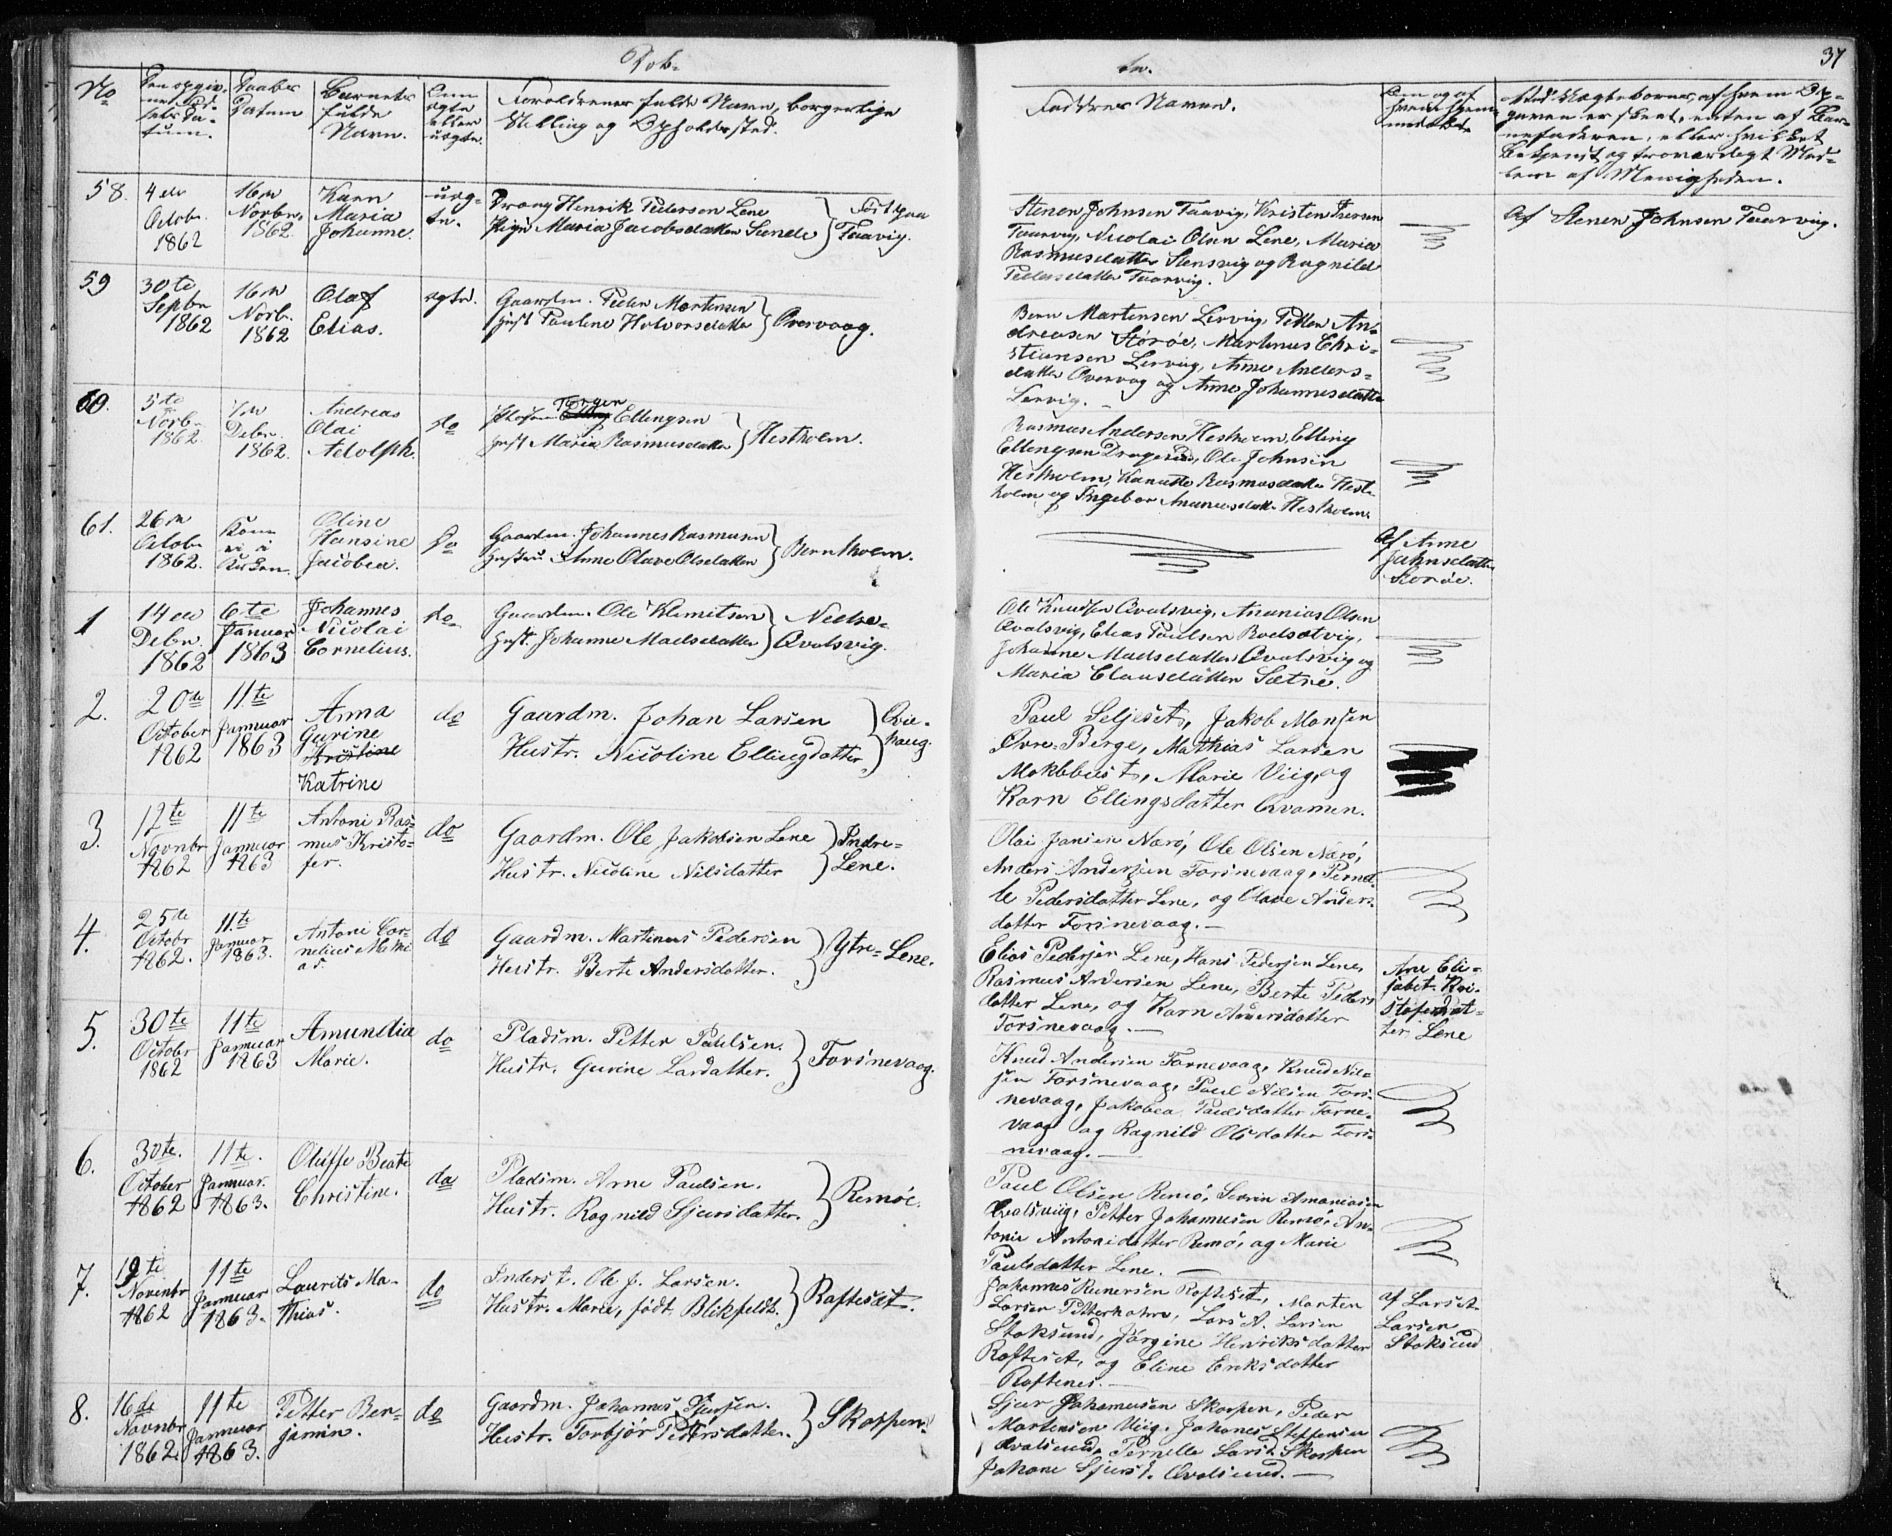 Dob-
te.
37
No
Den opgiv-
ne Fød-
sels Da-
tum.
Daabs
Datum
Barnets
fulde
Navn.
Om
egte
eller
uegte.
Forældrenes fulde Navn, borgerlige
Stilling og Opholdssted.
Faddres Navne.
Om og af
hvem hjem-
medøbt
Ved uægte børn, af hvem Op-
gaven er skeet, enten af Bar-
nefaderen, eller hvilket
bekjendt og troværdigt Med-
lem af Menigheden.
58.
4de
Octobr.
1862
16de
Novbr.
1862.
Karn
Maria
Johanne.
uæg-
te.
Dreng Henrik Pedersen Lene
Pige Maria Jacobsdatter Sande
Taavig.
Stenen Johnsen Taavig, Kristen Iversen
Taarvig, Nicolai Olsen Lene, Maria
Rasmusdatter Stensvig og Ragnild
Pedersdatter Taarvig.
Af Stenen Johnsen Taarvig.
59
30te
Septbr
1862
16de
Novb.
1862
Olaf
Elias.
egte.
Gaardm. Peder Mortensen
Hust Pauline Halvorsdatter
Overvaag.
Bern Martensen Lervig, Petter An-
dreasen Storøe, Martinus Chri-
stiansen Lervig, Anne Anders-
datter Overvag og Anne Johannesdatter
Lervig.
60.
5te
Novb.
1862
7de
Debr.
1862.
Andreas
Olai
Adolph.
do
Torgen
Elling Ellingsen
Hust Maria Rasmusdatter
Hestholm.
Rasmus Andersen Hestholm, Elling
Ellingsen Dragesund, Ole Johnsen
Hestholm, Kanutte Rasmusdatter Hest-
holm og Ingebor Ananiasdatter Hestholm.
61.
26de
Octob.
1862.
Kom
ei i
Kirken.
Oline
Hansine
Jacobea.
do
Gaardm. Johannes Rasmusen
Hustru Anne Olave Olsdatter
Berntholm.
Af Anne
Jahnsdatter
Storøe.
1
14de
Debr.
1862
6te
Januar
1863
Johannes
Nicolai
Cornelius.
do
Gaardm. Ole Klemitsen
Hust. Johanne Madsdatter
Nedre-
Qvalsvig.
Ole Knudsen Qvalsvig, Ananias Olsen
Qvalsvig, Elias Paulsen Rodsætvig,
Johanne Madsdatter Qvalsvig og
Maria Clausdatter Sætre.
2.
20de
October
1862
11te
Januar
1863
Anna
Gurine
Kristine
Katrine
do
Gaardm. Johan Larsen
Hustr. Nicoline Ellingdatter
Qvie-
haug.
Paul Seljeset, Jakob Monsen
Øvre-Berge, Mathias Larsen
Moklebust, Marie Viig, og
Karn Ellingsdatter Qvamen.
3.
12te
Novnbr
1862
11te
Januar
1863
Antoni Ras-
mus Kristo-
fer.
do
Gaardm. Ole Jakobsen Lene
Hustr. Nicoline Nilsdatter
Indre-
Lene.
Olai Jansen Nærø, Ole Olsen Nærø,
Anders Andersen Forsnevaag, Pernel-
le Pedersdatter Lene, og Olave Anders-
datter Forsnevaag.
4.
25de
Octobr
1862.
11te
Januar
1863.
Antoni Cor-
nelius Mathi-
as.
do
Gaardm. Martinus Pedersen
Hustr. Berte Andersdatter.
Ytre-Lene.
Elias Pedersen Lene, Hans Pedersen Lene,
Rasmus Andersen Lene, Berte Peders-
datter Lene, og Karn Andersdatter
Forsnevaag.
Ane Eli-
sabet Kri-
stofersdat-
ter Lene
5.
30te
Octobr
1862
11te
Januar
1863
Amundia
Marie.
do
Pladsm. Petter Paulsen.
Hustr. Gurine Larsdatter.
Forsnevaag.
Knud Andersen Forsnevaag, Knud Nil-
sen Forsnevaag, Paul Nilsen Fors-
nevaag, Jakobea Paulsdatter Forsne-
vaag og Ragnild Olsdatter Fors-
nevaag.
6.
30te.
October
1862
11te.
Januar.
1863.
Oluffe Beate
Christine.
do
Pladsm. Arne Paulsen.
Hustr. Ragnild Sjursdatter.
Remøe.
Paul Olsen Remø, Severin Ananiasen
Qvalsviig, Petter Johannesen Remø, An-
tonie Antonidatter Remø, og Marie
Paulsdatter Lene.
7.
19te
Novenbr
1862
11te
Januar
1863.
Laurits Ma-
thias.
do
Inderst. Ole J. Larsen.
Hustr. Marie, født Blikfeldt.
Raftesæt.
Johannes Reinersen Raftesæt, Morten
Larsen Petterholm, Lars A. Larsen
Stoksund, Jørgine Henriksdatter
Raftesæt, og Eline Eriksdatter
Raftenes.
af Lars A.
Larsen
Stoksund
8.
16de
Novnbr
1862
11te
Januar
1863.
Petter Ben-
jamin.
do
Gaardm. Johannes Sjursen.
Hustr. Torbjør Pedersdatter.
Skorpen.
Sjur Johannesen Skorpen, Peder
Martensen Viig, Johanes Steffensen
Qvalsund, Pernelle Larsd. Skorpen
Johane Sjursd. Qvalsund.